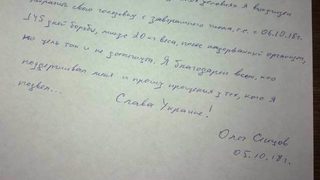 условиях я вынужден
прекратить свою голодовку с завтрашнего числа, т.е. с 06.10.18г.
145 дней борьбы, минус 20 кг веса, плюс надорванный организм,
но цель так и не достигнута. Я благодарен всем, кто
поддерживал меня и прошу прощения у тех, кого я
подвел...
Слава Украине!
Олег Сенцов
05.10.18г.